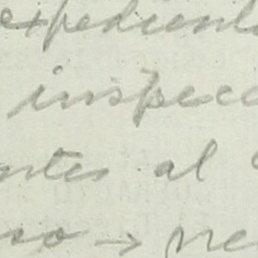 expedient
inspecc
ntes al
so → ne